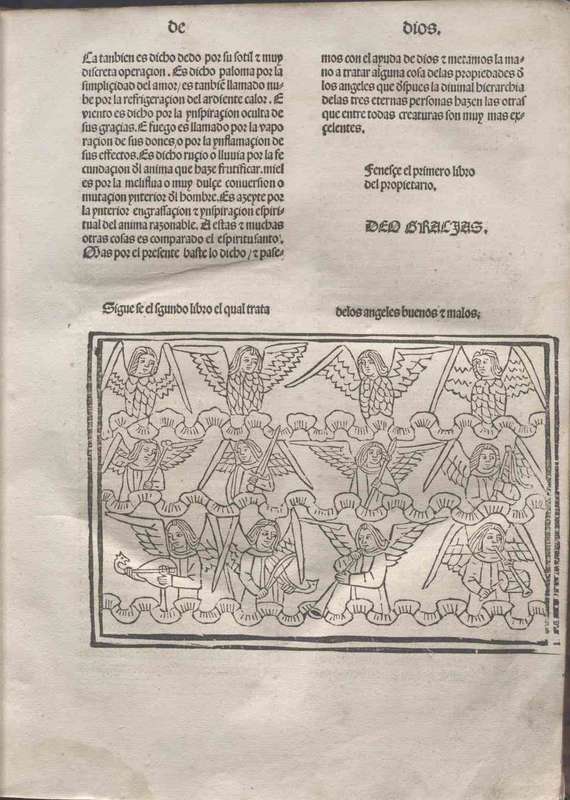 de dios.
Ca tanbien es dicho dedo por su sotil ⁊ muy
discreta operaçion. Es dicho paloma por la
simpliçidad del amor/es tanbiē llamado nu-
be por la refrigeraçion del ardiente calor. E
viento es dicho por la ynspiraçion oculta de
sus graçias. E fuego es llamado por la vapo
racion de sus dones/o por la ynflamaçion de
sus effectos. Es dicho ruçio o lluuia por la fe
cundaçion đl anima que haze frutificar. miel
es por la meliflua o muy dulçe conuersion o
mutaçion ynterior đl hombre. Es azeyte por
la ynterior engrassaçion ⁊ ynspiraçion espiri-
tual del anima razonable. A estas ⁊ muchas
otras cosas es comparado el espiritu santo.
Mas por el presente baste lo dicho/⁊ pase-
mos con el ayuda de dios ⁊ metamos la ma-
no a tratar alguna cosa delas propiedades đ
los angeles que đspues la diuinal hierarchia
delas tres eternas personas hazen las otras
que entre todas creaturas son muy mas ex-
çelentes.
Fenesçe el primero libro
del propietario.
DEO GRACIAS.
Sigue se el sgundo libro el qual trata delos angeles buenos ⁊ malos;